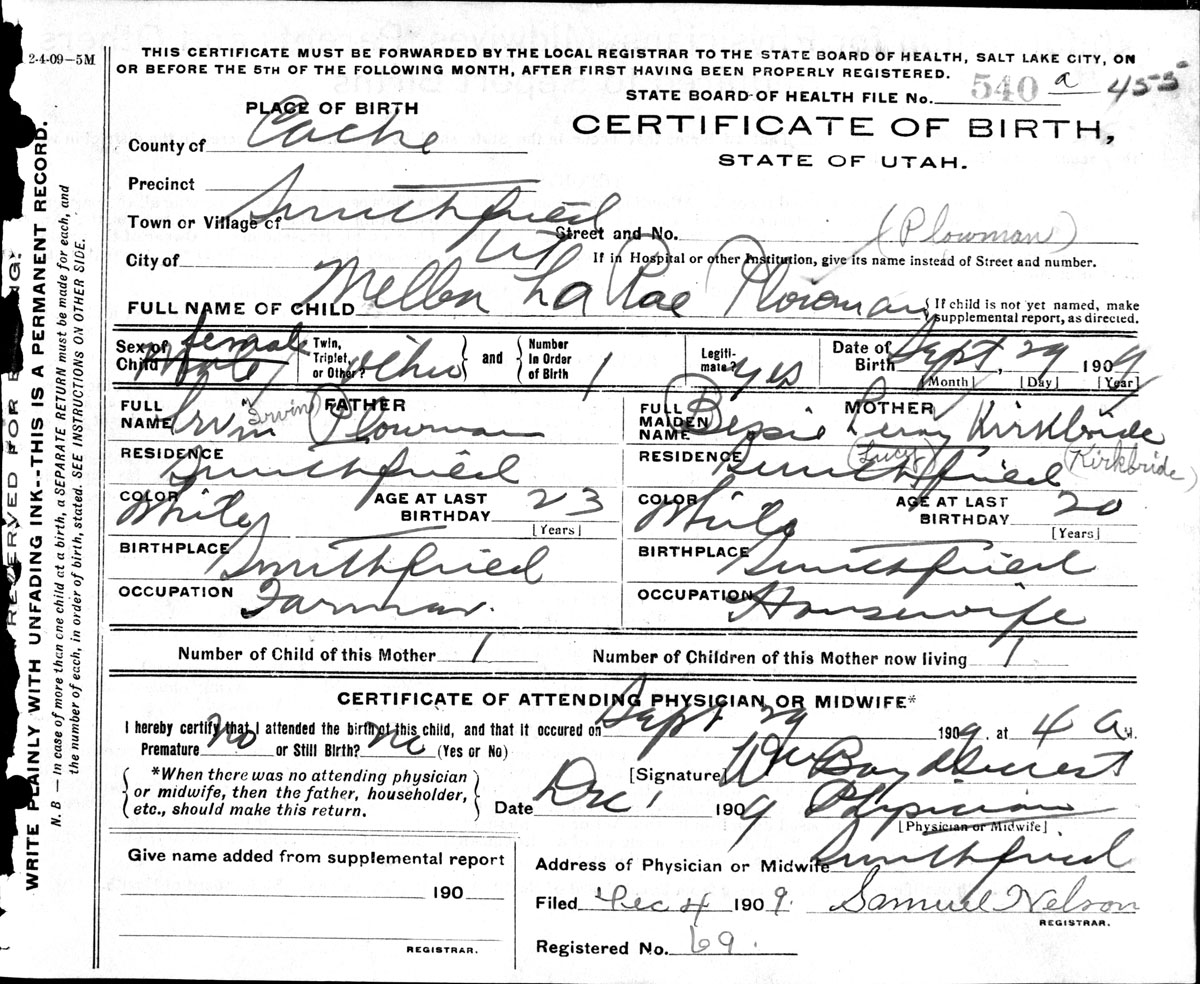 2-4-09—5M
THIS CERTIFICATE MUST BE FORWARDED BY THE LOCAL REGISTRAR TO THE STATE BOARD OF HEALTH, SALT LAKE CITY, ON
OR BEFORE THE 5TH OF THE FOLLOWING MONTH, AFTER FIRST HAVING BEEN PROPERLY REGISTERED.
STATE BOARD OF HEALTH FILE No. 540 a 455
PLACE OF BIRTH
CERTIFICATE OF BIRTH,
STATE OF UTAH.
County of Cache
Precinct
Town or Village of Smithfield
Street and No. (Plowman)
City of Ut
If in Hospital or other Institution, give its name instead of Street and number.
FULL NAME OF CHILD Mellba La Rae Plowman { If child is not yet named, make supplemental report, as directed.
Sex of Child Male female
Twin, Triplet, or Other? other and Number In Order of Birth 1
Legitimate? yes
Date of Birth Sept, 29 1909
[Month] [Day] [Year]
FATHER
FULL NAME Irvin (Irwin) Plowman
RESIDENCE Smithfield
COLOR White AGE AT LAST BIRTHDAY 23
[Years]
BIRTHPLACE Smithfield
OCCUPATION Farmer.
MOTHER
FULL MAIDEN NAME Bessie Kirkbride
(Lucy) (Kirkbride)
RESIDENCE Smithfield
COLOR White AGE AT LAST BIRTHDAY 20
[Years]
BIRTHPLACE Smithfield
OCCUPATION Housewife
Number of Child of this Mother 1 Number of Children of this Mother now living 1
CERTIFICATE OF ATTENDING PHYSICIAN OR MIDWIFE*
I hereby certify that I attended the birth of this child, and that it occured on Sept 29 1909. at 4 a M.
Premature No or Still Birth? no (Yes or No)
{ *When there was no attending physician or midwife, then the father, householder, etc., should make this return. }
[Signature] Wm
Date Dec 1 1909 Physician
[Physician or Midwife]
Address of Physician or Midwife Smithfield
Filed Dec 4 1909. Samuel Nelson
REGISTRAR.
Registered No. 69.
Give name added from supplemental report
190
REGISTRAR.
RESERVED FOR BINDING.
WRITE PLAINLY WITH UNFADING INK--THIS IS A PERMANENT RECORD.
N. B — In case of more than one child at a birth, a SEPARATE RETURN must be made for each, and
the number of each, in order of birth, stated. SEE INSTRUCTIONS ON OTHER SIDE.